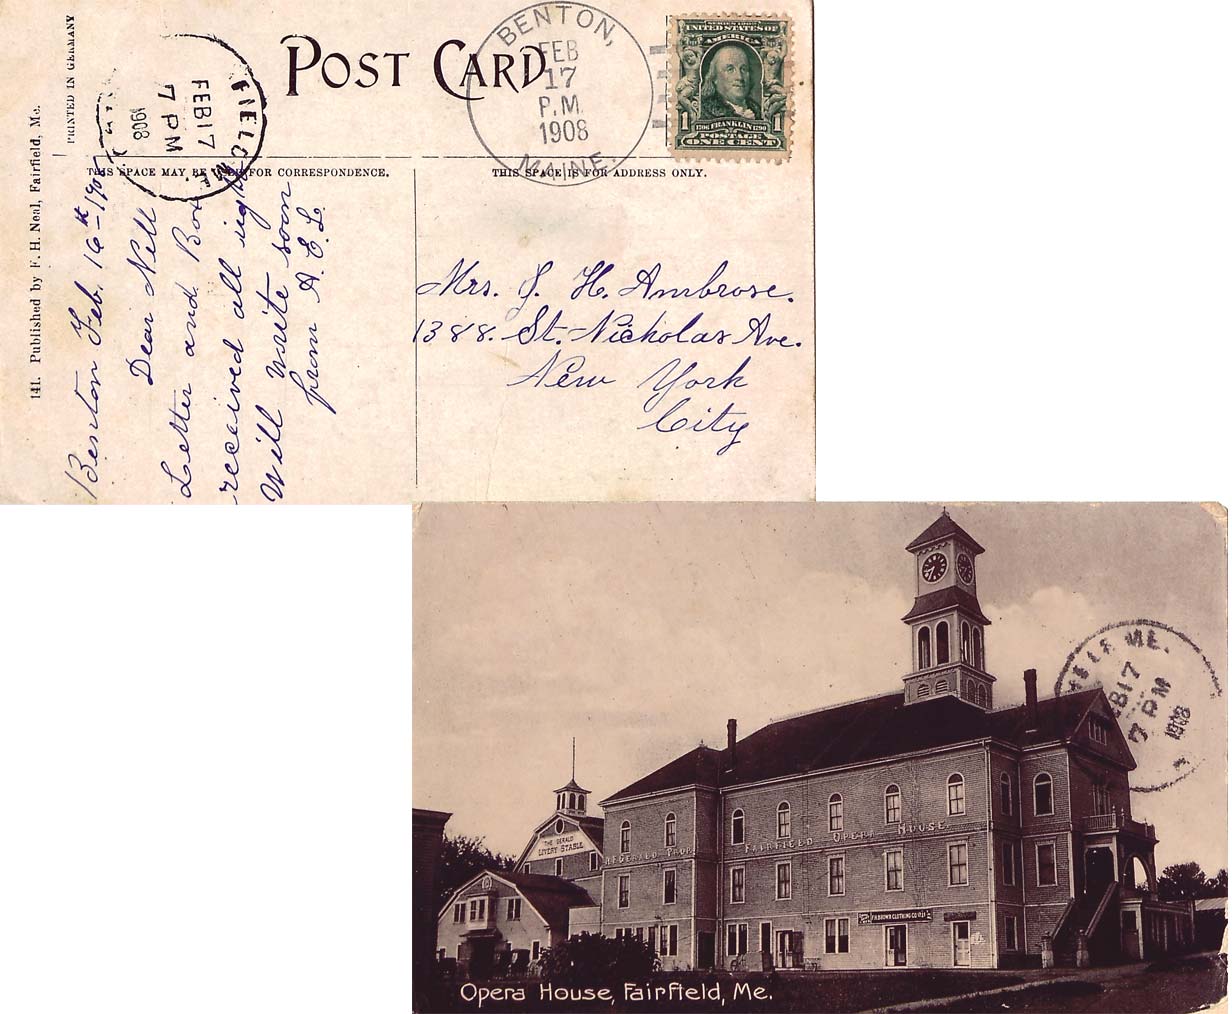 POST CARD
PRINTED IN GERMANY
141. Published by F. H. Neal, Fairfield, Me.
BENTON,
FEB
17
P.M.
1908
MAINE.
FIELD, ME.
FEB 17
7 PM
1908
SERIES 1902
UNITED STATES OF
AMERICA
1706 FRANKLIN 1790
1 1
POSTAGE
ONE CENT
THIS SPACE MAY BE USED FOR CORRESPONDENCE.
THIS SPACE IS FOR ADDRESS ONLY.
Benton Feb. 16th - 190
Dear Nell
Letter and Box
received all right
Will write soon
from A. E. L.
Mrs. J. H. Ambrose.
1388. St. Nicholas Ave.
New York
City
ME.
B 17
7 PM
1908
THE GERALD
LIVERY STABLE
GERALD PROP.
FAIRFIELD OPERA HOUSE.
F.H. BROWN CLOTHING CO.
Opera House, Fairfield, Me.